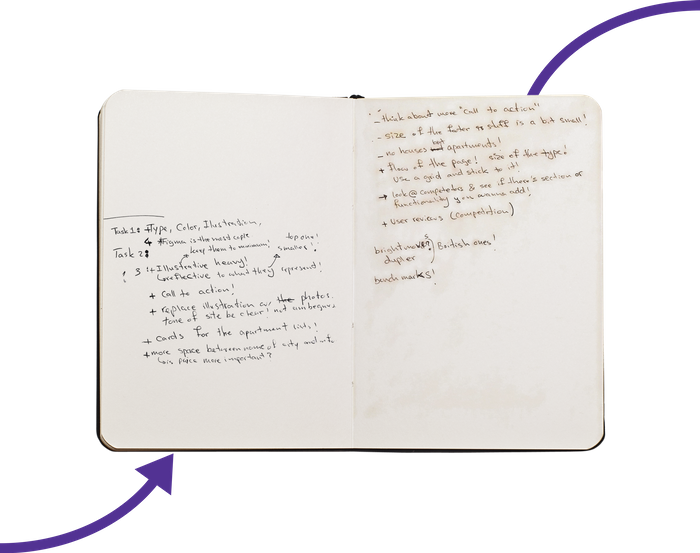 Task 1: Type, Color, Illustration,
4 Figma is the most
keep them to minimum!
top one!
smaller!
Task 2:
! 3 ! + Illustrative heavy!
reflective to what they represent!
+ Call to action!
+ replace illustration the photos.
tone of site be clear! not
+ cards for the apartment lists!
+ more space between name of city and
is more important?
- think about more "call to action"
- size of the footer stuff is a bit small!
- no houses but apartments!
+ flow of the page! size of the type!
Use a grid and stick to it!
→ look @ competetors & see if there's section or
functionality you wanna add!
+ User reviews (Competetion)
British ones!
bench marks!